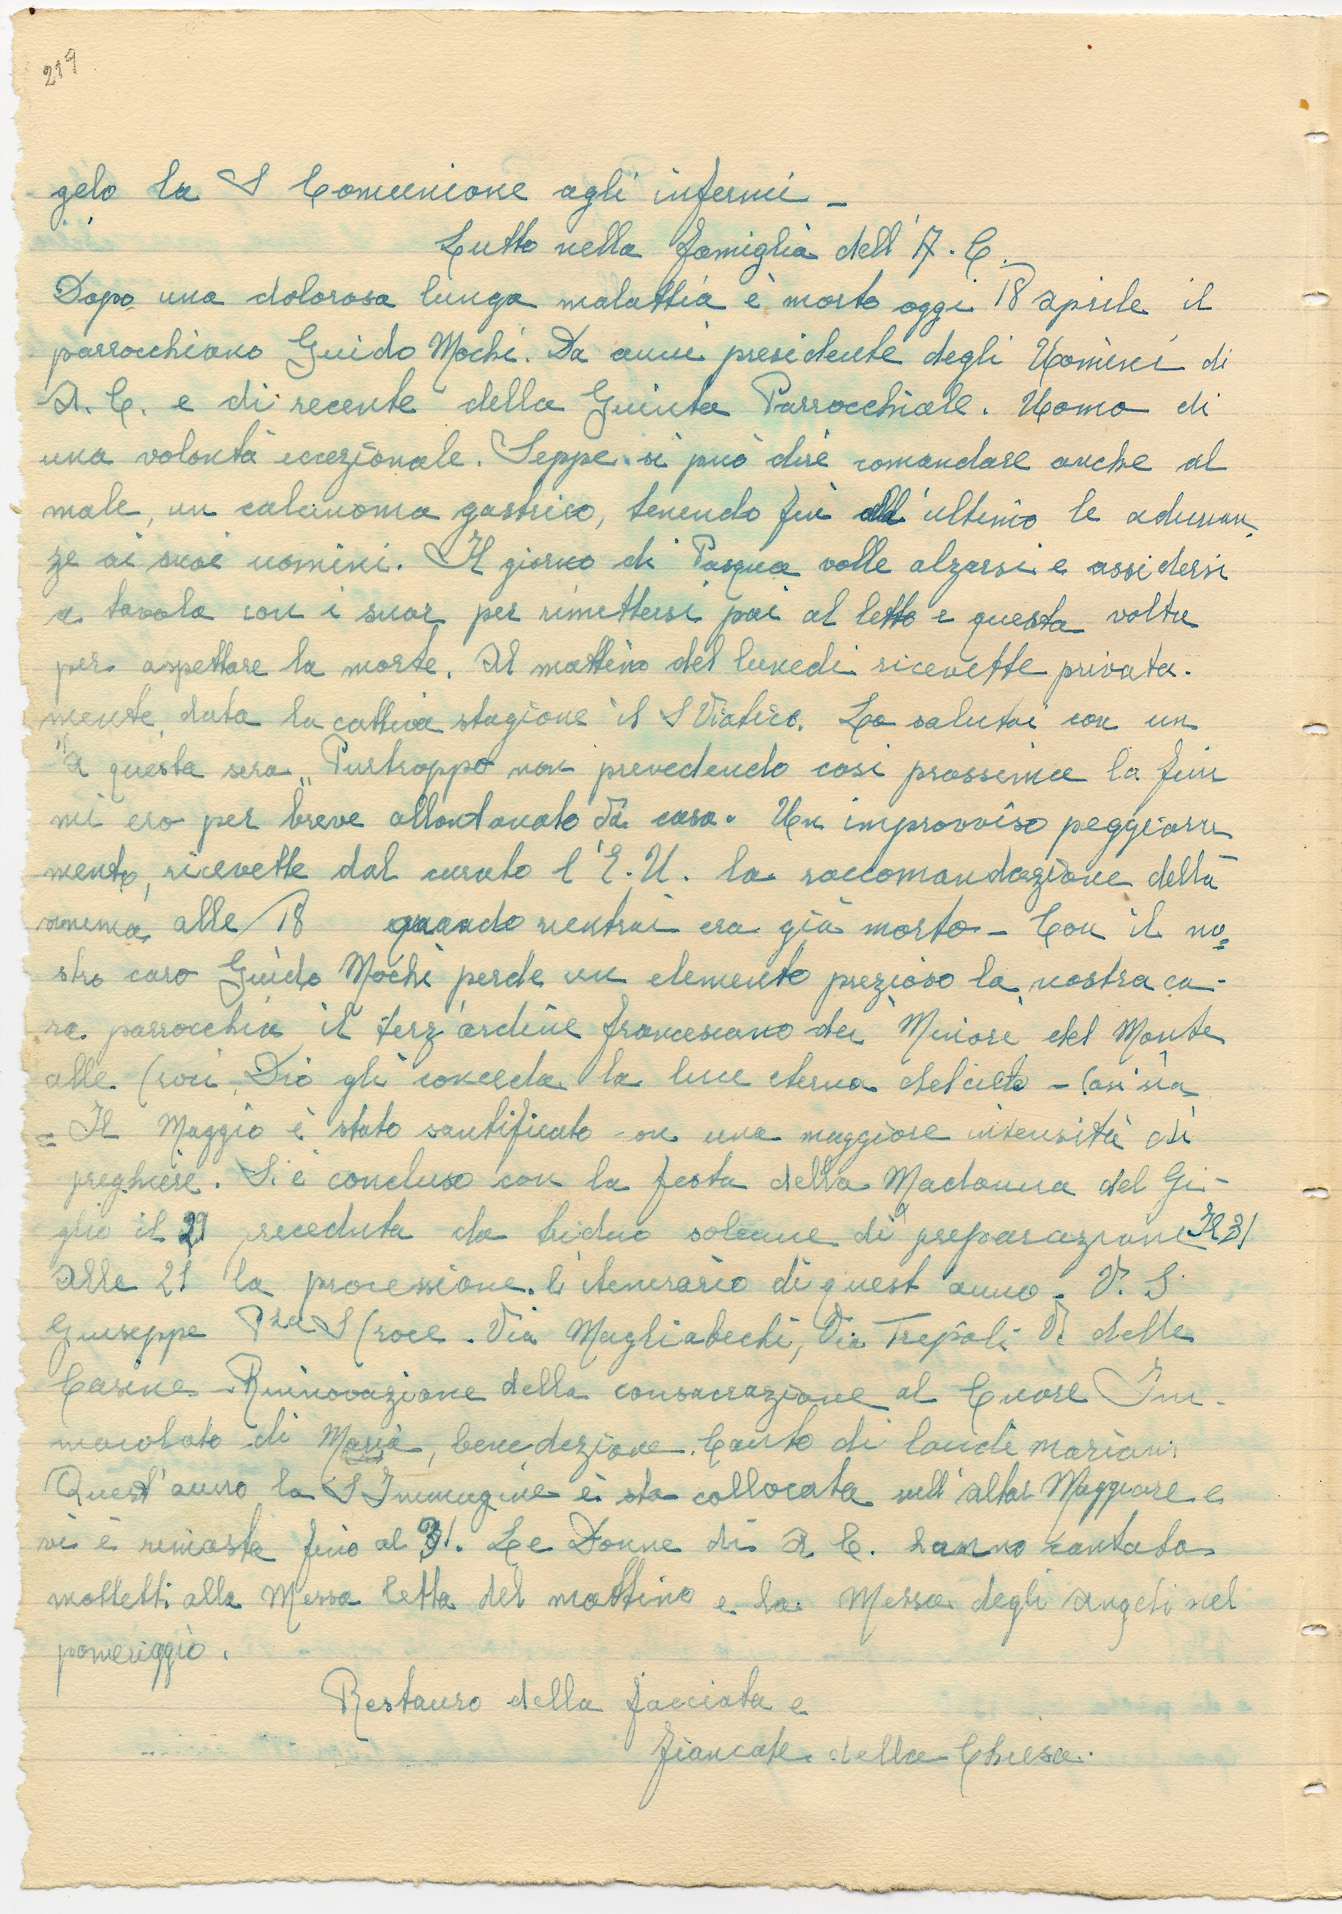 219
gelo la S Comunione agli infermi _
Lutto nella famiglia dell'A. C.
Dopo una dolorosa lunga malattia è morto oggi 18 aprile il
parrocchiano Guido Mochi. Da anni presidente degli Uomini di
A. C. e di recente della Giunta Parrocchiale. Uomo di
una volontà eccezionale. Seppe si può dire comandare anche al
male, un calcinoma gastrico, tenendo fin all'ultimo le adunan-
ze ai suoi uomini. Il giorno di Pasqua volle alzarsi e assidersi
a tavola con i suoi per rimettersi poi al letto e questa volta
per aspettare la morte. Al mattino del lunedi ricevette privata-
mente, data la cattiva stagione il S Viatico. Lo salutai con un
"A questa sera" Purtroppo non prevedendo cosi prossima la fine
mi ero per breve allontanato di casa. Un improvviso peggiora
mento, ricevette dal curato l'E.U. la raccomandazione della
anima, alle 18 quando rientrai era già morto _ Con il no=
stro caro Guido Mochi perde un elemento prezioso la nostra ca-
ra parrocchia il terz'ordine francescano dei Minori del Monte
alle Croci. Dio gli conceda la luce eterna del cielo - Cosi sia
= Il Maggio è stato santificato con una maggiore intensità di
preghiere. Si è concluso con la festa della Madonna del Gi-
glio il 29 preceduta da triduo solenne di preparazione Il 31
Alle 21 la processione. L'itenerario di quest anno. V. S.
Giuseppe Pza S Croce. Via Magliabechi, Via Tripoli V. delle
Casine - Rinnovazione della consacrazione al Cuore Im-
macolato di Maria, benedizione. Canto di laudi mariani
Quest'anno la S Immagine è sta collocata sull'altar Maggiore e
vi è rimasta fino al 31. Le Donne di A C. hanno cantato
mottetti alla Messa letta del mattino e la Messa degli Angeli nel
pomeriggio.
Restauro della facciata e
fiancate della Chiesa.